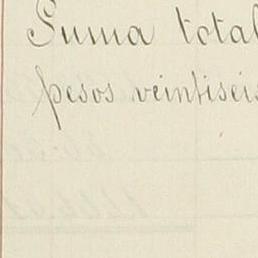 Suma total
pesos veintiseis